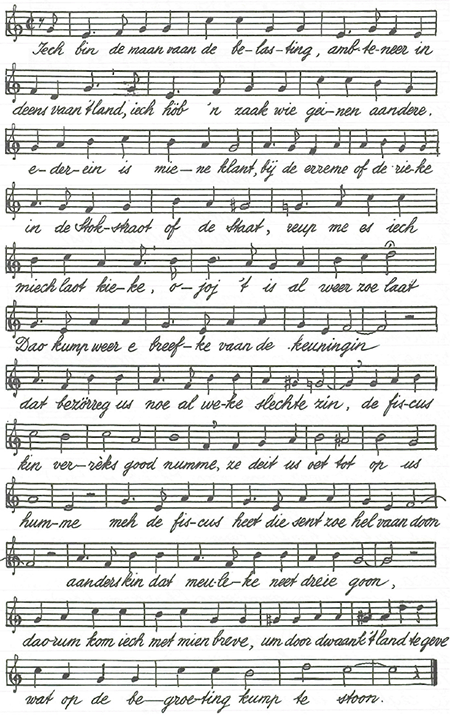 Iech bin de maan vaan de be-las-ting, amb-te-neer in
deens vaan 't land, iech höb 'n zaak wie gei-nen aandere.
e-der-ein is mie-ne klant, bij de erreme of de rie-ke
in de Stok-straot of de Staat, reup me es iech
miech laot kie-ke, o-joj 't is al weer zoe laat
Dao kump weer e breef-ke vaan de keuningin
dat bezörreg us noe al we-ke slechte zin, de fis-cus
kin ver-rèks good numme, ze deit us vet tot op us
hum-me meh de fis-cus heet die sent zoe hel vaan doon
aanders kin dat meu-le-ke neet dreie goon,
dao-rum kom iech met mien breve, um door dwaank 't land te geve
wat op de be-groe-ting kump te stoon.